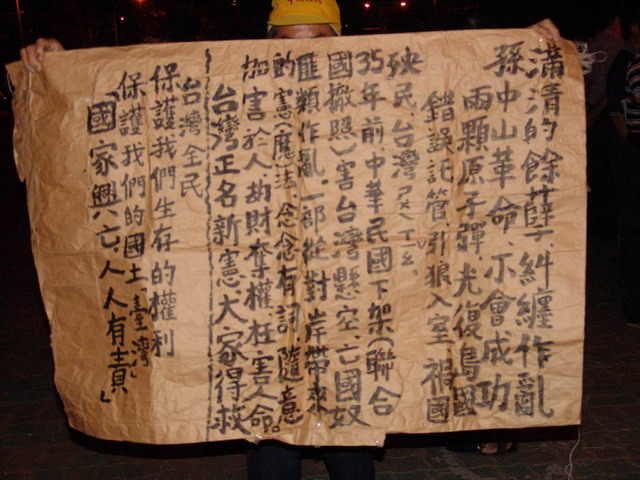 滿清的餘孽、糾纏作亂
孫中山革命、不會成功
兩顆原子彈、光復島國
錯誤託管引狼入室 禍國
殃民、台灣
35年前中華民國下架(聯合
國撤照)害台灣懸空、亡國奴
匪類作亂、一部從對岸帶來
的憲(魔)法、念念有詞、隨意
加害於人、劫財奪權枉害人命。
台灣正名新憲大家得救
台灣全民
保護我們生存的權利
保護我們的國土「臺灣」
「國家興亡、人人有責」